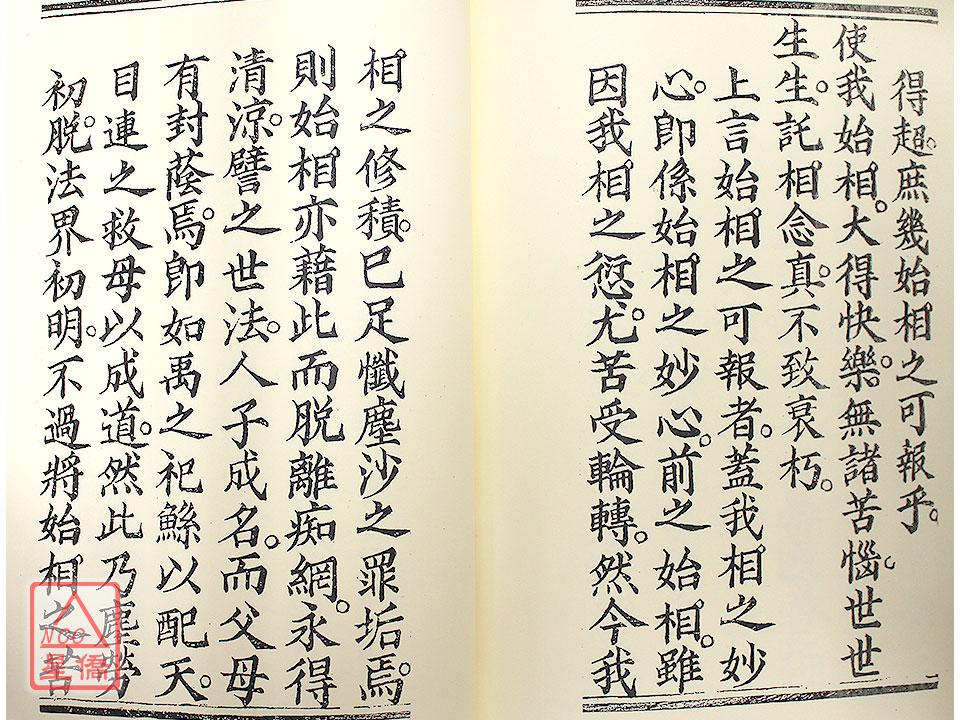 得超。庶幾始相之可報乎。
使我始相。大得快樂。無諸苦惱。世世
生生。託相念真。不致衰朽。
上言始相之可報者。蓋我相之妙
心。即係始相之妙心。前之始相。雖
因我相之愆尤。苦受輪轉。然今我
相之修積。已足懺塵沙之罪垢焉。
則始相亦藉此而脫離痴網。永得
清涼。譬之世法。人子成名。而父母
有封蔭焉。即如禹之祀鯀以配天。
目連之救母以成道。然此乃塵勞
初脫。法界初明。不過將始相之
星僑
NCC